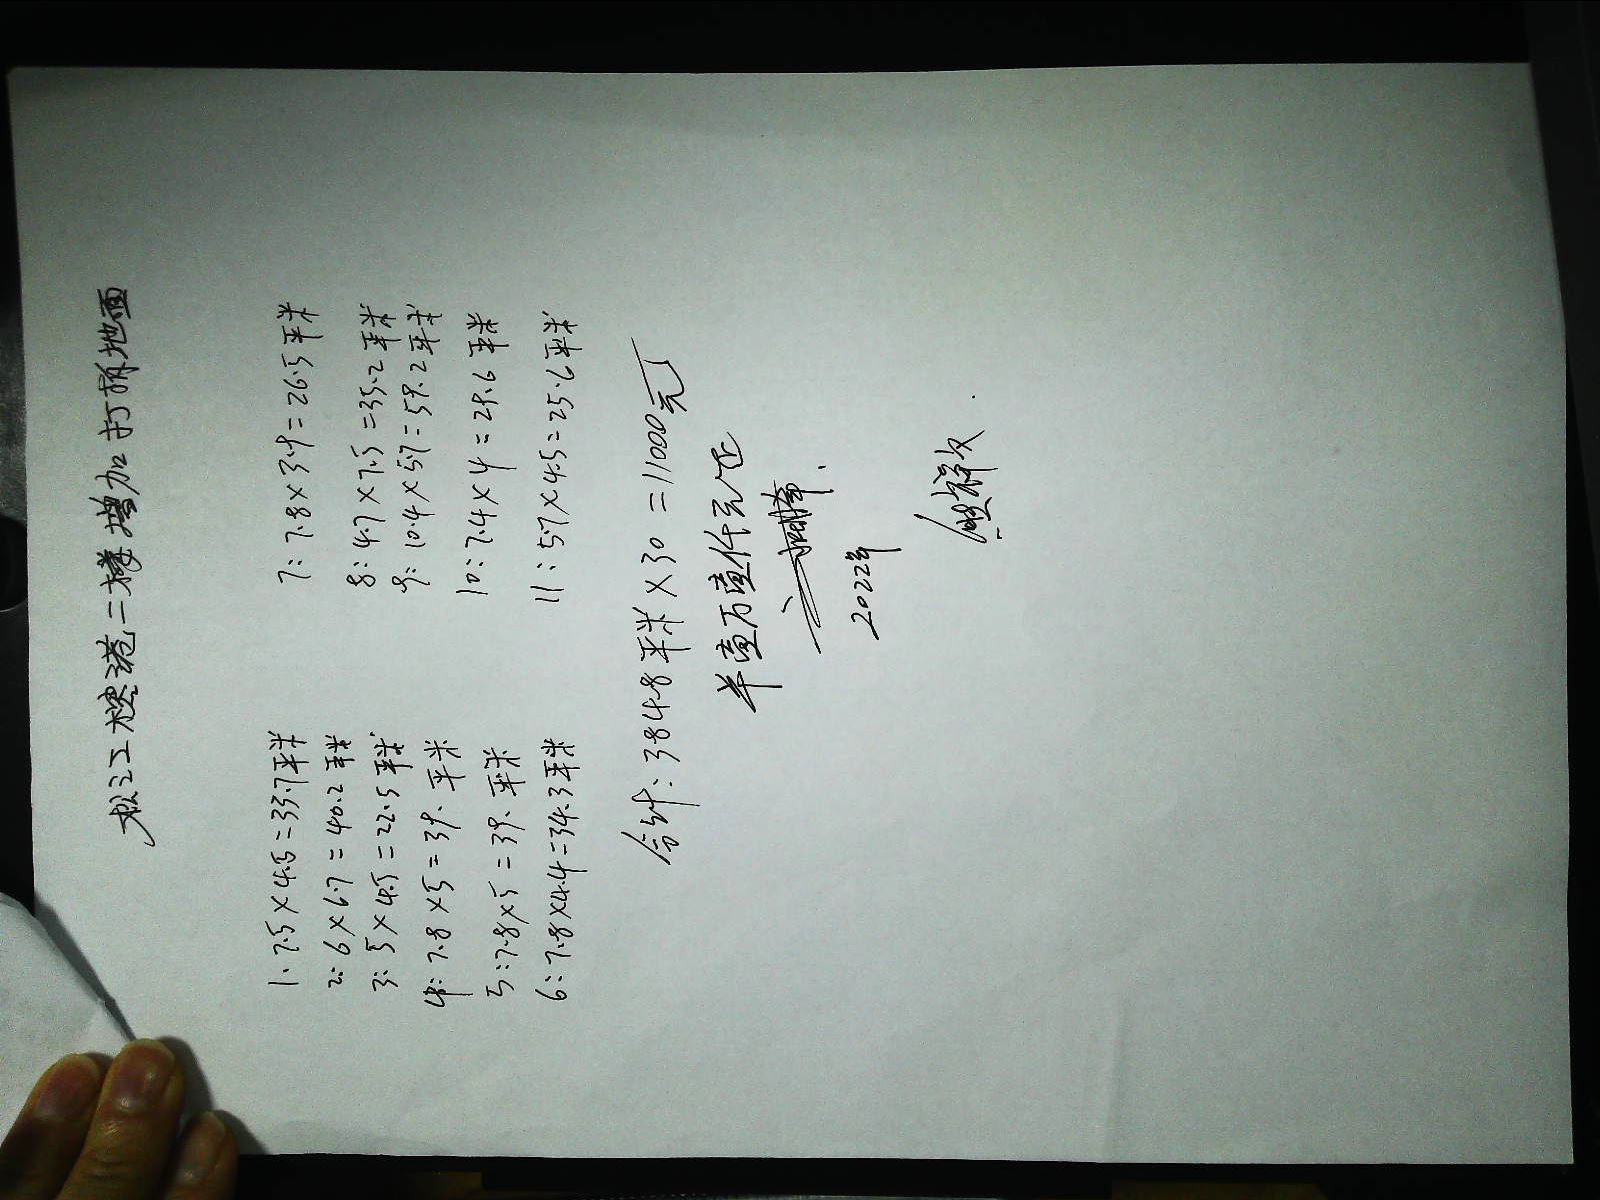 松江工樸港二樓增加打拆地面
1. 7.5×4.5=33.7平米
2: 6×6.7=40.2平米
3: 5×4.5=22.5平米
4: 7.8×5=39.平米
5: 7.8×5=39.平米
6: 7.8×4.4=34.3平米
7: 7.8×3.4=26.5平米
8: 4.7×7.5=35.2平米
9: 10.4×5.7=59.2平米
10: 7.4×4=29.6平米
11: 5.7×4.5=25.6平米
合计: 384.8平米×30=11000元
壹万壹仟元正
2022年